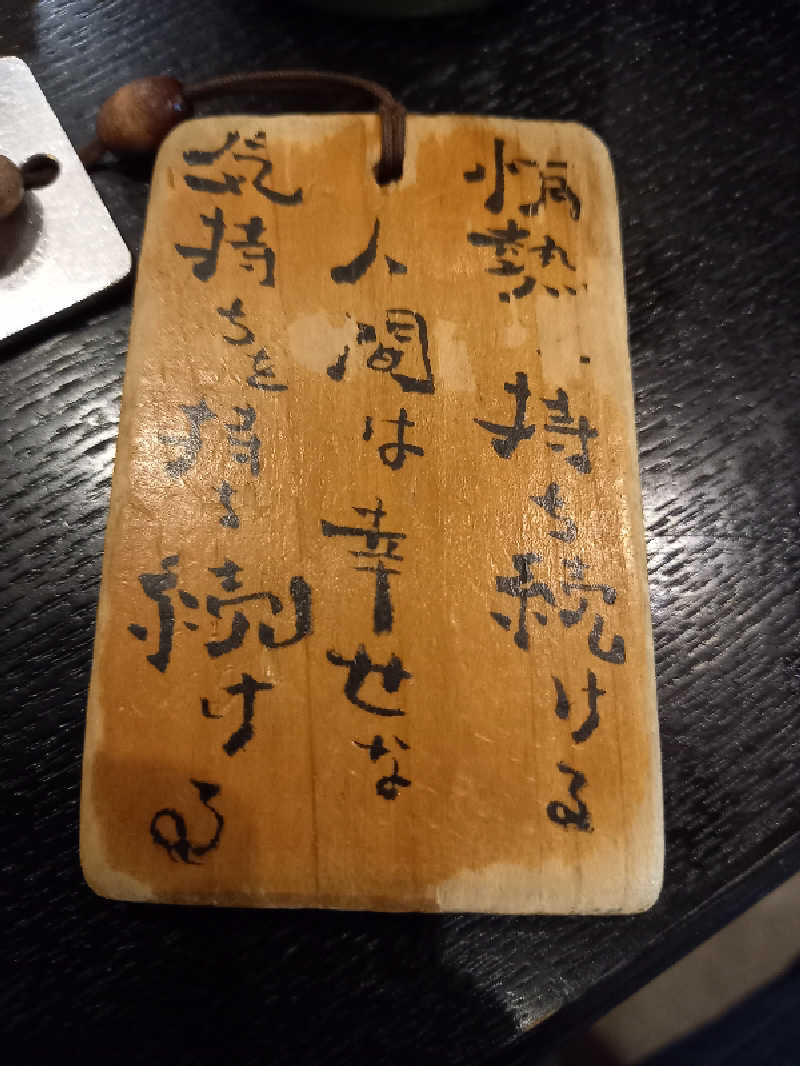 情熱 持ち続ける
人間は幸せな
気持ちを持ち続ける